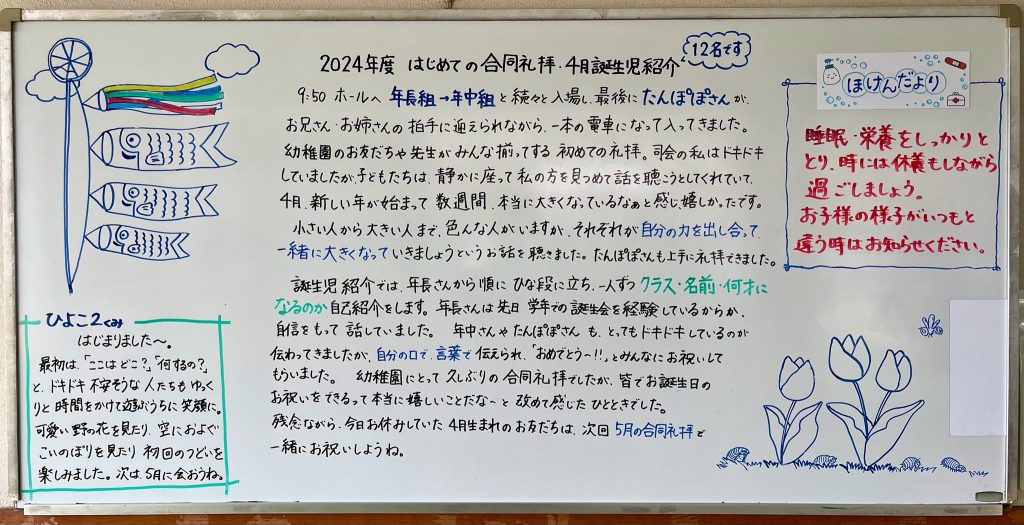 2024年度 はじめての合同礼拝・4月誕生児紹介
12名です
9:50 ホールへ 年長組→年中組と続々と入場し、最後にたんぽぽさんが、
お兄さん・お姉さんの拍手に迎えられながら、一本の電車になって入ってきました。
幼稚園のお友だちや先生がみんな揃ってする初めての礼拝。司会の私はドキドキ
していましたが、子どもたちは、静かに座って私の方を見つめて話を聴こうとしてくれていて、
4月、新しい年が始まって数週間、本当に大きくなっているなぁと感じ、嬉しかったです。
小さい人から大きい人まで、色んな人がいますが、それぞれが自分の力を出し合って、
一緒に大きくなっていきましょうというお話を聴きました。たんぽぽさんも上手に礼拝できました。
誕生児紹介では、年長さんから順にひな段に立ち、一人ずつクラス・名前・何才に
なるのか自己紹介をします。年長さんは先日学年での誕生会を経験しているからか、
自信をもって話していました。 年中さんやたんぽぽさんも、とってもドキドキしているのが
伝わってきましたが、自分の口で、言葉で伝えられ、「おめでとう〜!!」とみんなにお祝いして
もらいました。 幼稚園にとって久しぶりの合同礼拝でしたが、皆でお誕生日の
お祝いをできるって本当に嬉しいことだな〜と改めて感じたひとときでした。
残念ながら、今日お休みしていた4月生まれのお友だちは、次回5月の合同礼拝で
一緒にお祝いしようね。
ひよこ2くみ
はじまりました〜。
最初は、「ここはどこ?」「何するの?」
と、ドキドキ不安そうな人たちもゆっく
りと時間をかけて遊ぶうちに笑顔に。
可愛い野の花を見たり、空におよぐ
こいのぼりを見たり初回のつどいを
楽しみました。次は、5月に会おうね。
ほけんだより
睡眠・栄養をしっかりと
とり、時には休養もしながら
過ごしましょう。
お子様の様子がいつもと
違う時はお知らせください。